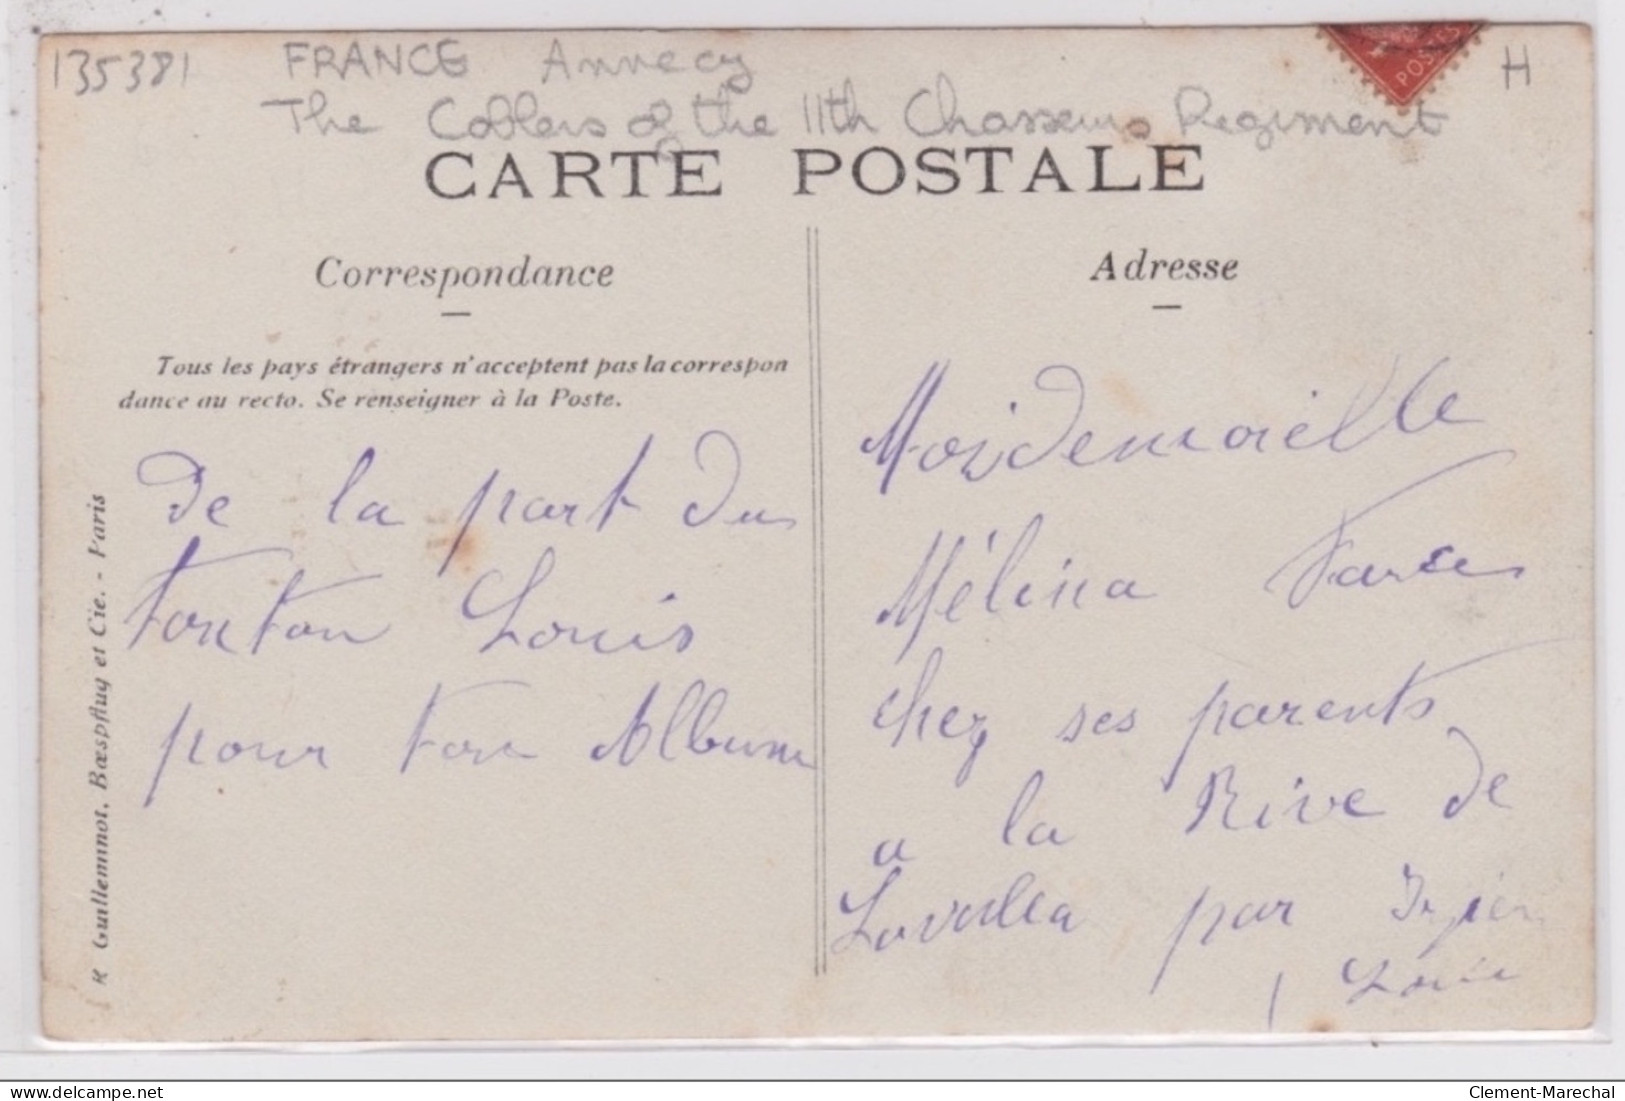 135381 FRANCE Annecy H
The Coblers of the 11th Chasseurs Regiment
POSTES
CARTE POSTALE
Correspondance
Adresse
Tous les pays étrangers n'acceptent pas la correspon
dance au recto. Se renseigner à la Poste.
De la part du
tonton Louis
pour ton Album
Mademoiselle
Mélina
chez ses parents
a la Rive de
par
Guillemnot, Bœspflug et Cie. - Paris
delcampe.net
Clement-Marechal